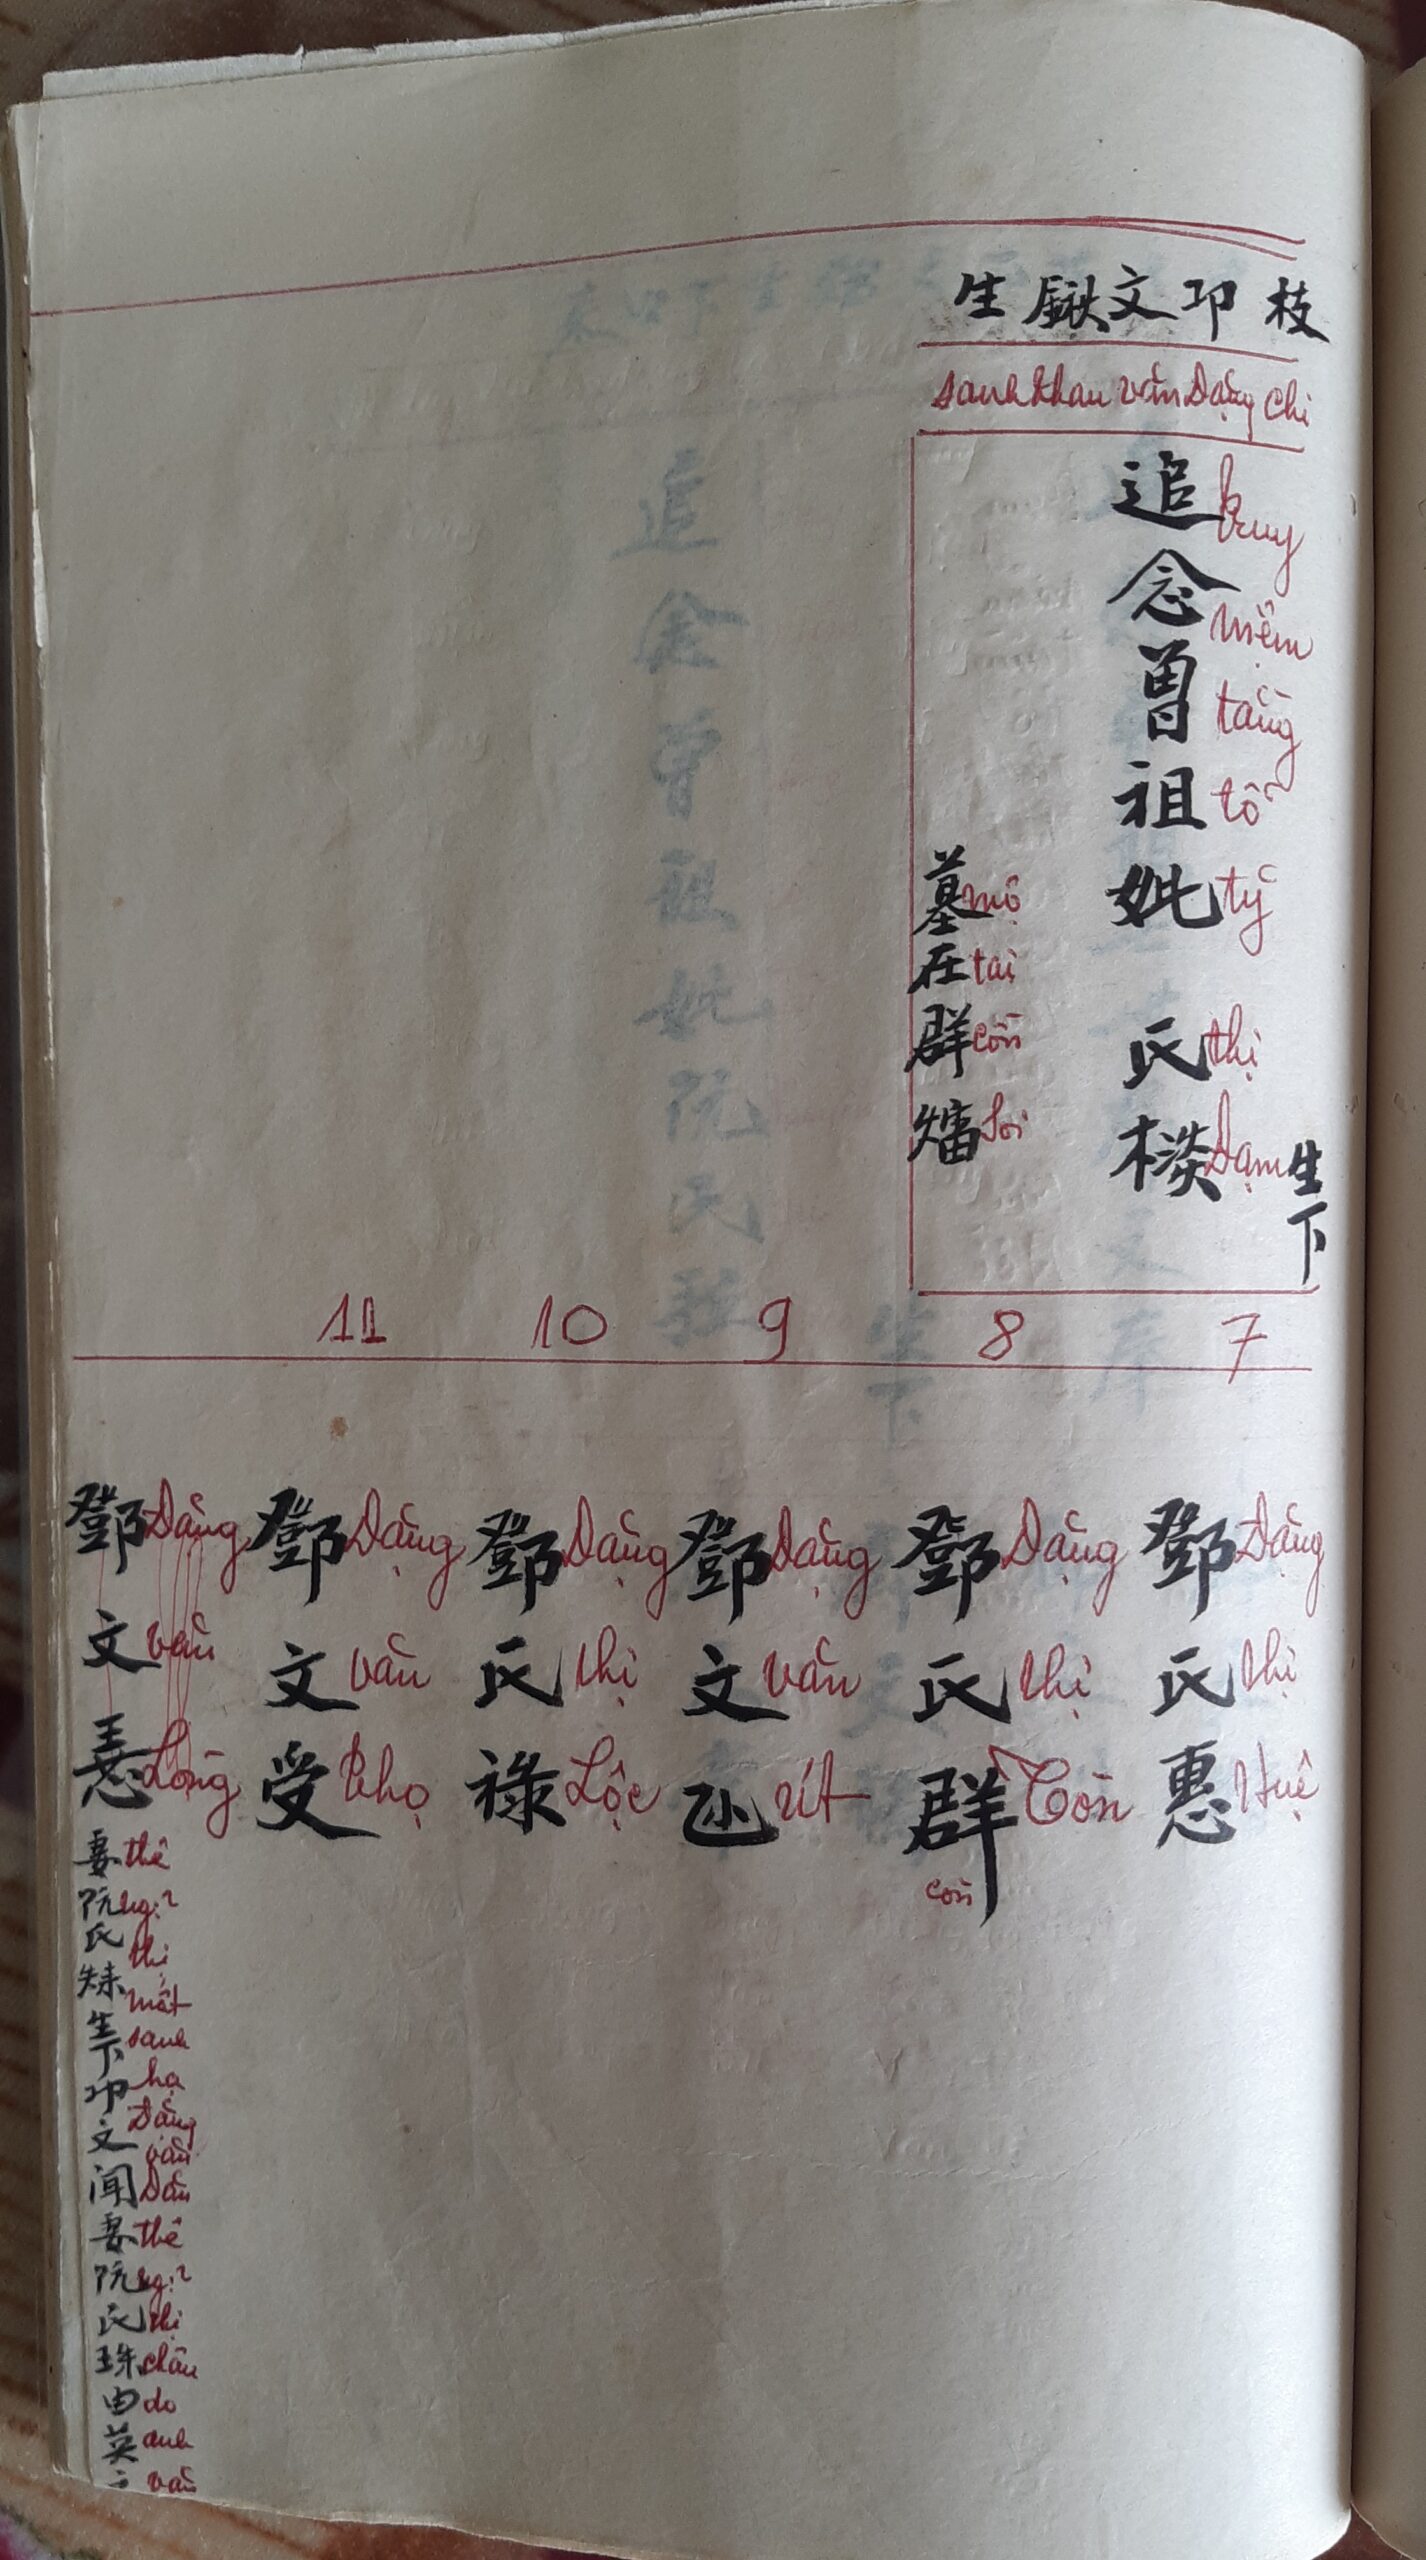 枝卭文鍬生
chi Đặng văn thau sanh
追念曾祖妣 氏橪
truy niệm tằng tổ tỷ thị Đạm
生下
墓在群㷯
mộ tại còn soi
7 8 9 10 11
鄧氏惠
Đặng thị Huệ
鄧氏群
Đặng thị Còn
còn
鄧文
Đặng văn rít
鄧氏祿
Đặng thị Lộc
鄧文受
Đặng văn thọ
鄧文
Đặng văn Lòng
妻阮氏
thê ng: thị mất
生下卭文闻
sanh hạ Đặng văn Dăn
妻阮氏珠由英文
thê ng: thị châu do anh văn